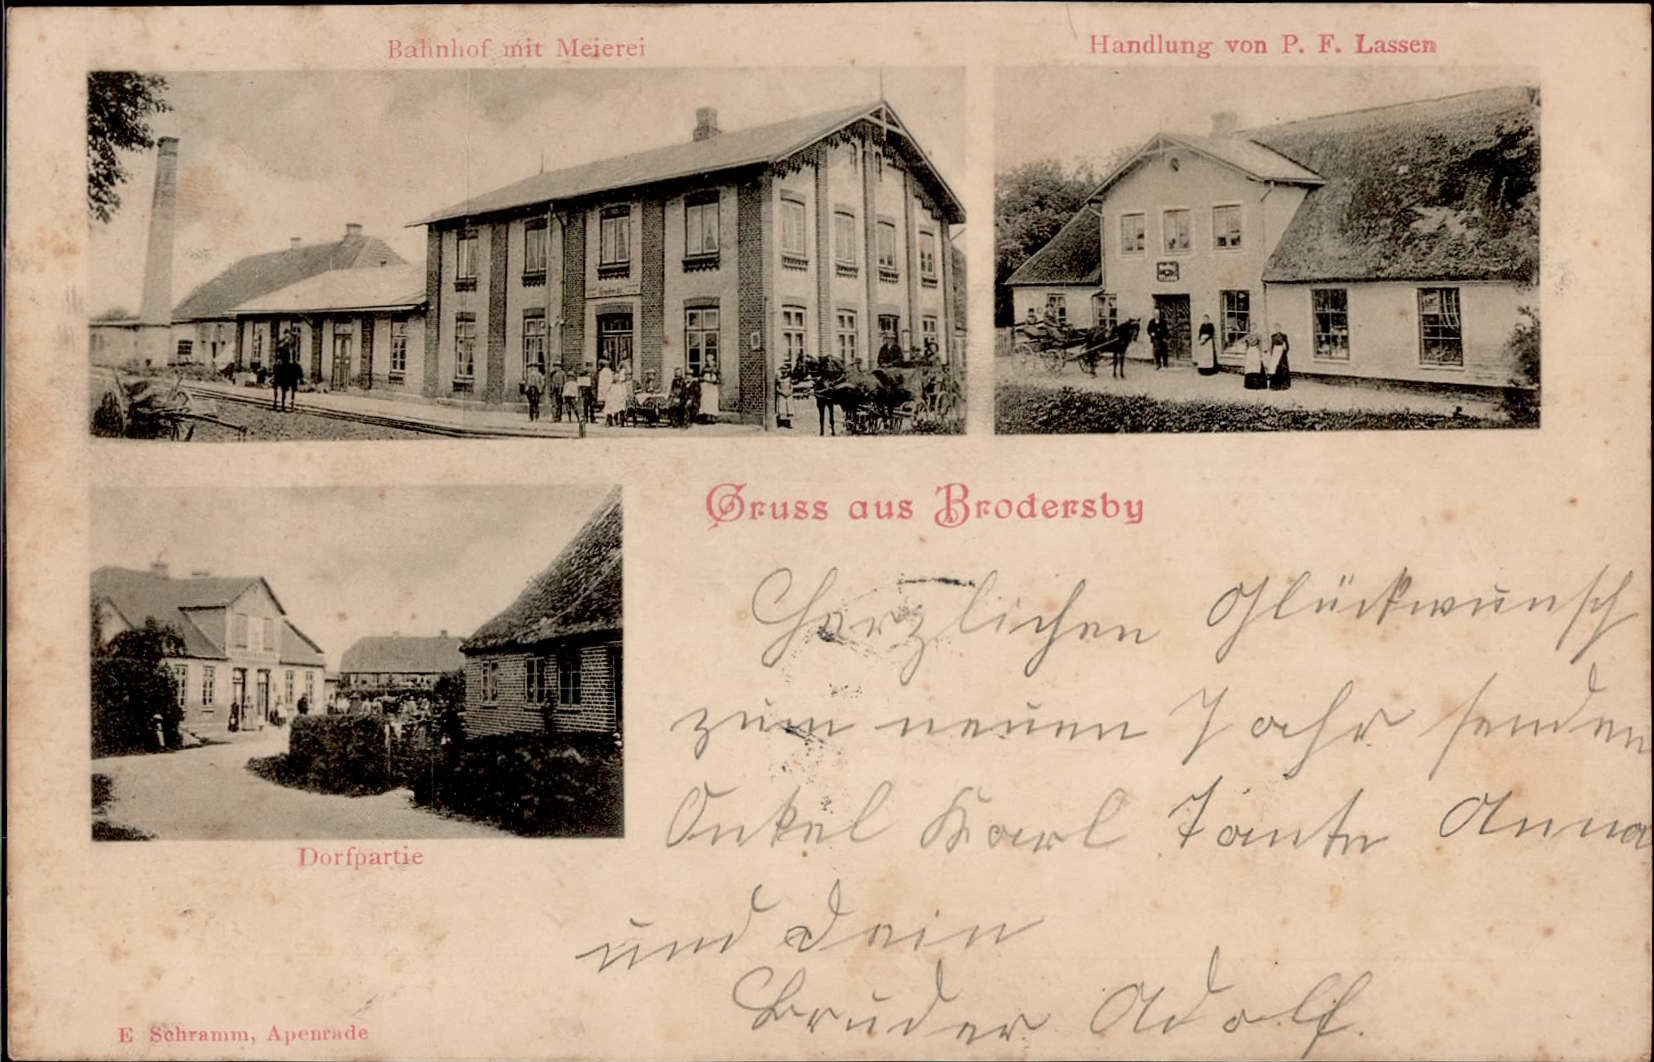 Bahnhof mit Meierei
Handlung von P. F. Lassen
Gruss aus Brodersby
Herzlichen Glückwunsch
zum neuen Jahr senden
Onkel Karl Tante Anna
und Dein
Bruder Adolf.
Dorfpartie
E Schramm, Apenrade